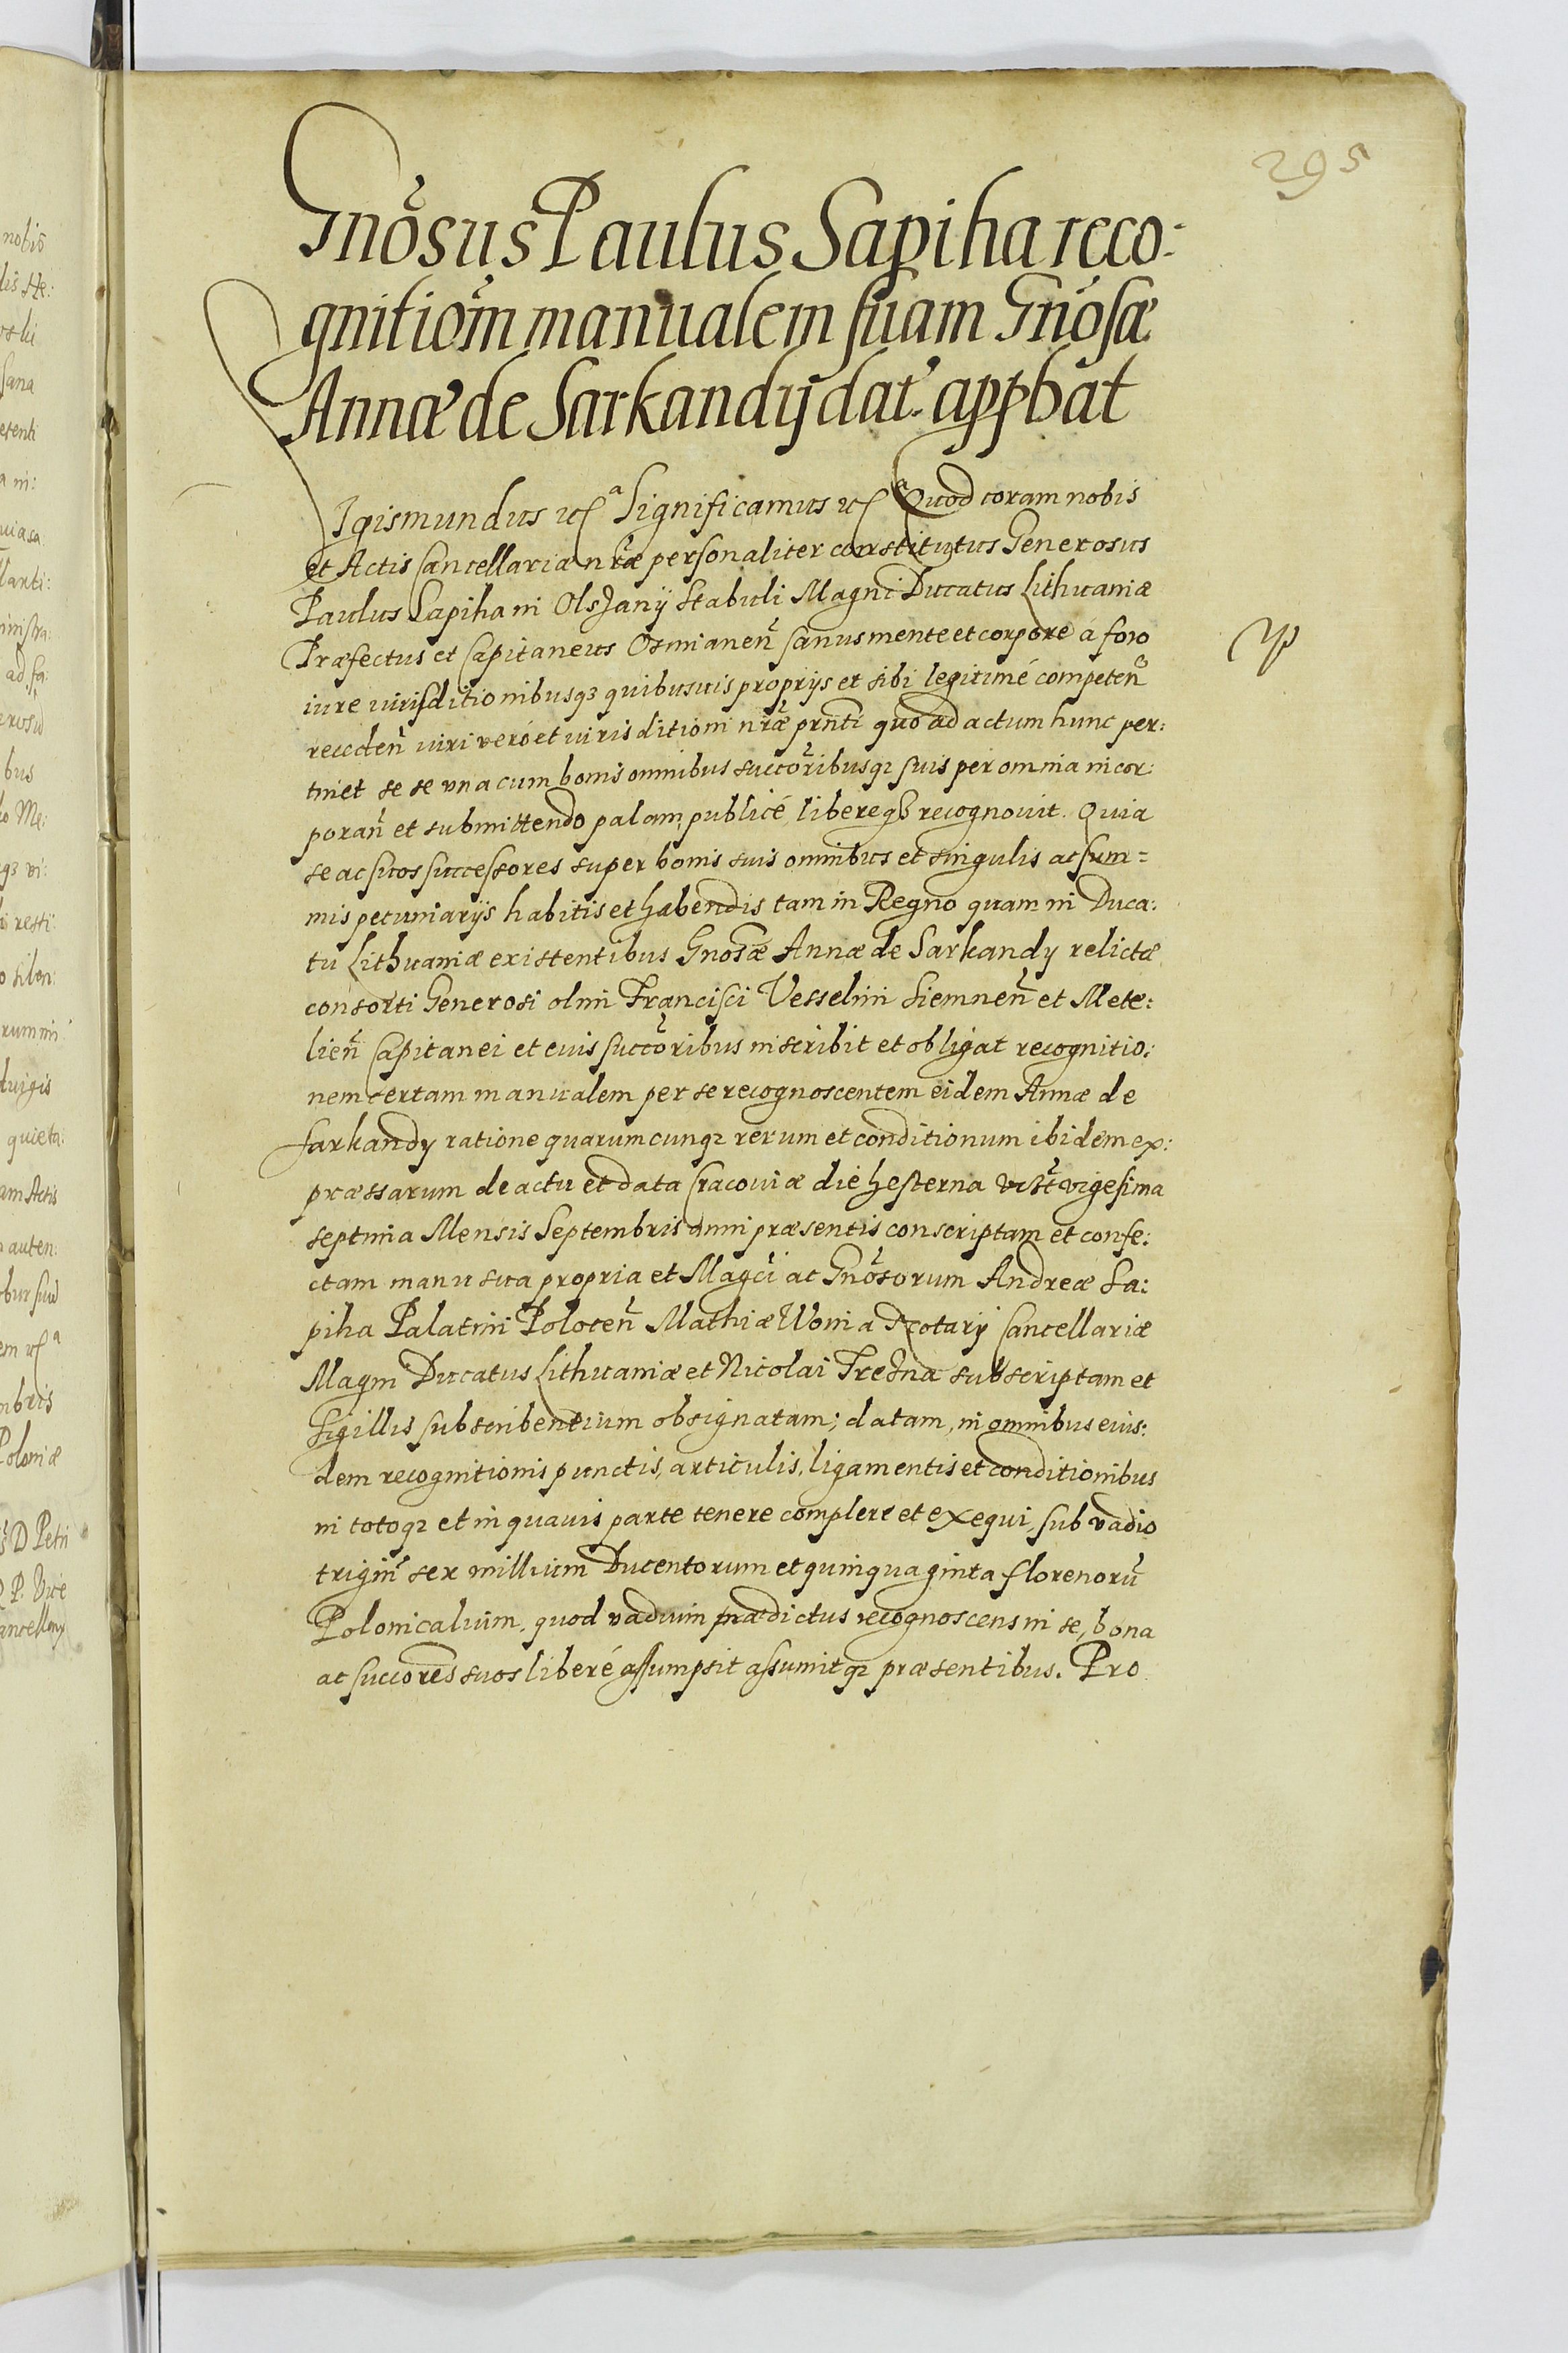 295
Gnosus Paulus Sapiha reco-
gnitiom manualem suam Gnosæ
Annæ de Sarkandÿ dat. appbat
Sigismundus etc.ª Significamus etc. Quod coram nobis
et Actis Cancellariæ nræ personaliter constitutus Generosus
Paulus Sapiha in Olszanÿ Stabuli Magni Ducatus Lithuaniæ
Præfectus et Capitaneus Osmianen̄ sanus mente et corpore à foro
iure iurisditionibusqꝫ quibusuis proprÿs et sibi legitimé competen̄
receden̄ iuri veró et iurisditioni nræ prnti quo ad actum hunc per:
tinet se se vna cum bonis omnibus succoribusqꝫ suis per omnia incor:
poran̄ et submittendo palam, publicé, libereqꝫ recognouit. Quia
se ac suos successores super bonis suis omnibus et singulis ac sum=
mis pecuniarÿs habitis et habendis tam in Regno quam in Duca:
tu Lithuaniæ existentibus Gnosæ Annæ de Sarkandy relictæ
consorti Generosi olim Francisci Vesselini Siemnen̄ et Mete:
lien̄ Capitanei et euis succoribus inscribit et obligat recognitio:
nem certam manualem per se recognoscentem eidem Annæ de
Sarkandy ratione quarumcunqꝫ rerum et conditionum ibidem ex:
præssarum de actu et data Cracouiæ die hesterna vict vigesima
septima Mensis Septembris anni præsentis conscriptam et confe:
ctam manu sua propria et Magci ac Gnosorum Andreæ Sa:
piha Palatini Polocen̄ Mathiæ Woina Notarÿ Cancellariæ
Magni Ducatus Lithuaniæ et Nicolai Trezna subscriptam et
Sigillis subscribentium obsignatam; datam, in omnibus eius:
dem recognitionis punctis, articulis, ligamentis et conditionibus
in totoqꝫ et in quauis parte tenere complere et exequi, sub vadio
trigin̄ sex millium Ducentorum et quinquaginta florenorū
Polonicalium, quod vadium prædictus recognoscens in se, bona
ac succores suos liberé assumpsit assumitqꝫ præsentibus. Pro